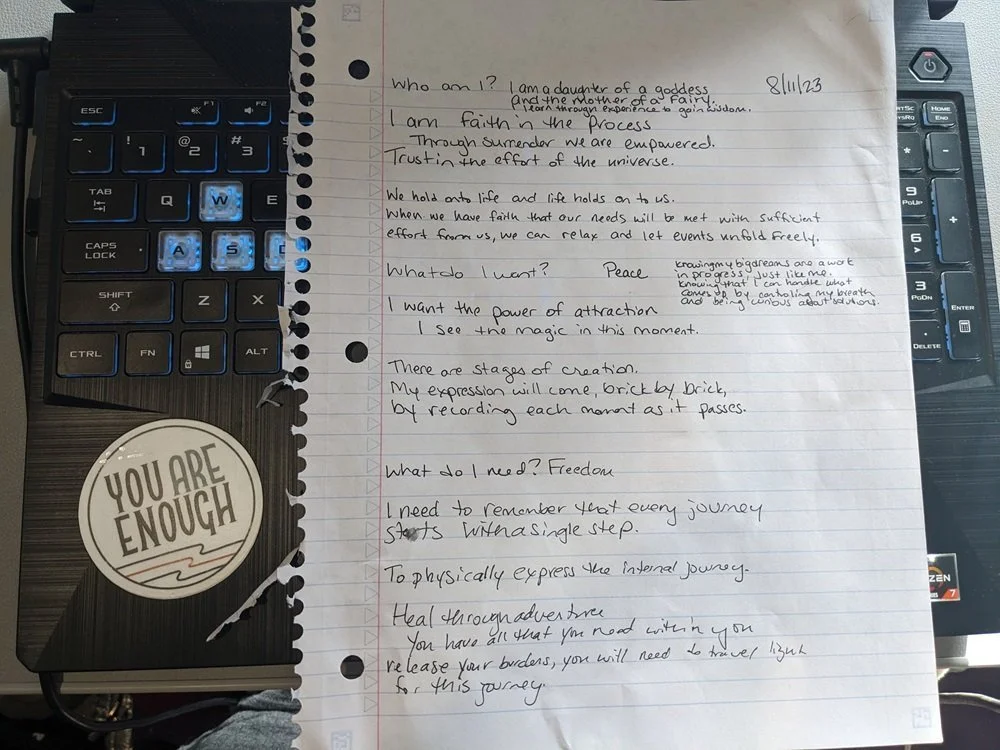 Who am I? I am a daughter of a goddess 8/11/23
and the mother of a fairy.
I learn through experience to gain wisdom.
I am faith in the process
Through surrender we are empowered.
Trust in the effort of the universe.
We hold onto life and life holds on to us.
When we have faith that our needs will be met with sufficient
effort from us, we can relax and let events unfold freely.
What do I want? Peace
knowing my big dreams are a work
in progress, just like me.
knowing that I can handle what
comes up by controling my breath
and being curious about solutions.
I want the power of attraction
I see the magic in this moment.
There are stages of creation.
My expression will come, brick by brick,
by recording each moment as it passes.
What do I need? Freedom
I need to remember that every journey
starts with a single step.
To physically express the internal journey.
Heal through adventure
You have all that you need within you
release your burdens, you will need to travel light
for this journey.
YOU ARE
ENOUGH
ESC
F1
F2
~
` 
! 1
@ 2
# 3
TAB
Q
W
E
CAPS
LOCK
A
S
D
SHIFT
Z
X
CTRL
FN
ALT
PrtSc
SysRq
HOME
End
*
-
9
PgUp
+
6
3
PgDn
ENTER
.
DELETE
ZEN
7